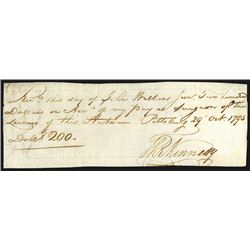 Rec'd this day of John Wilkins Junr Two hundred
Dollars on Acct of my pay as Surgeon of the
Legion of the United Pittsburg 29th Octr 1795
Dolls 200
Kennedy